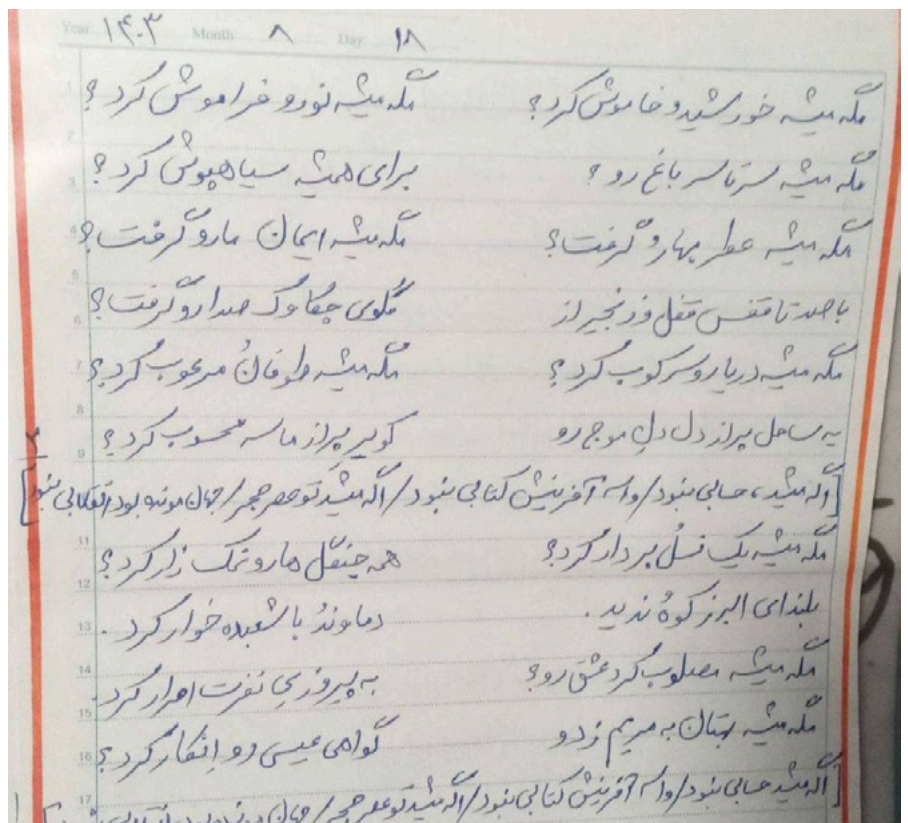 Year ۱۴۰۳ Month ۸ Day ۱۸
1 مگه میشه خورشیدو خاموش کرد؟ مگه میشه نورو فراموش کرد؟
2
3 مگه میشه سرتاسر باغ رو؟ برای همیشه سیاهپوش کرد؟
4 مگه میشه عطر بهارو گرفت؟ مگه میشه ایمان مارو گرفت؟
5
6 با صد تا قفس قفل و زنجیر از گلوی چکاوک صدارو گرفت؟
7 مگه میشه دریارو سرکوب کرد؟ مگه میشه طوفانُ مرعوب کرد؟
8
9 یه ساحل پر از دل دلِ موج رو کویر پر از ماسه محسوب کرد؟
[اگه میشد، حسابی نبود/واسه آفرینش کتابی نبود/اگه میشد تو عصر حجر/جهان مونده بود انقلابی نبود] ۲
11 مگه میشه یک نسلُ بر دار کرد؟ همه جنگل هارو نمک زار کرد؟
12
13 بلندای البرز کوهُ ندید. دماوندُ با شعبده خوار کرد.
14 مگه میشه مصلوب کرد عشق رو؟ به پیروزیِ نفرت اصرار کرد.
15
16 مگه میشه بهتان به مریم زد و گواهی عیسی رو انکار کرد؟
17 [اگه میشد حسابی نبود/واسه آفرینش کتابی نبود/اگه میشد تو عصر حجر/جهان مونده بود انقلابی نبود]